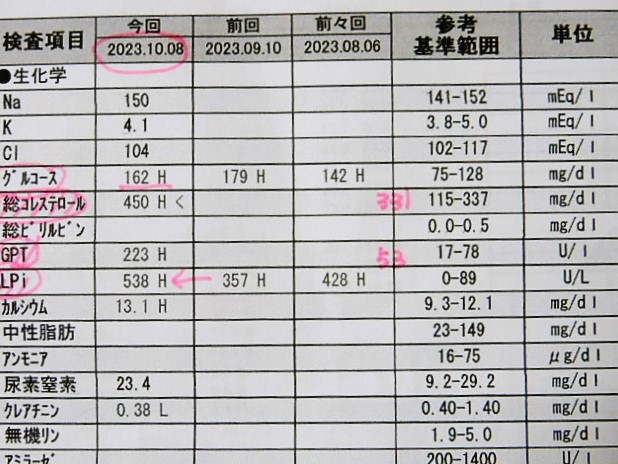 検査項目 今回 前回 前々回 参考基準範囲 単位
2023.10.08 2023.09.10 2023.08.06
●生化学
Na 150 141-152 mEq/l
K 4.1 3.8-5.0 mEq/l
Cl 104 102-117 mEq/l
グルコース 162 H 179 H 142 H 75-128 mg/dl
総コレステロール 450 H < 331 115-337 mg/dl
総ビリルビン 0.0-0.5 mg/dl
GPT 223 H 53 17-78 U/l
LPi 538 H ← 357 H 428 H 0-89 U/L
カルシウム 13.1 H 9.3-12.1 mg/dl
中性脂肪 23-149 mg/dl
アンモニア 16-75 μg/dl
尿素窒素 23.4 9.2-29.2 mg/dl
クレアチニン 0.38 L 0.40-1.40 mg/dl
無機リン 1.9-5.0 mg/dl
アミラーゼ 200-1400 U/l